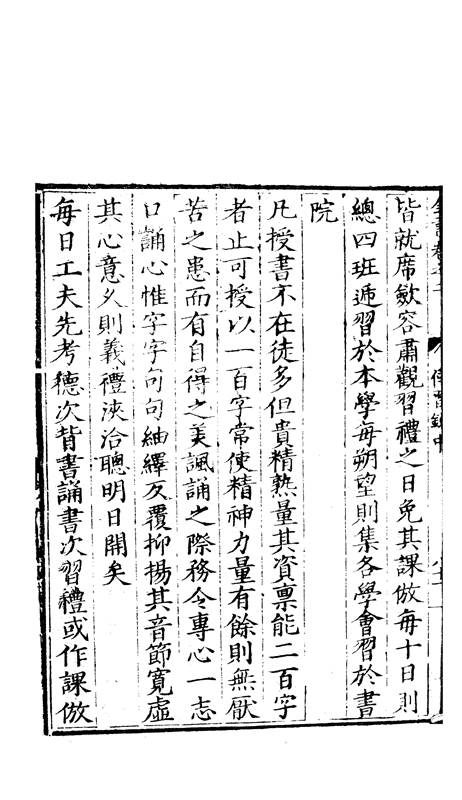 皆就席斂容肅觀習禮之日免其課倣每十日則
總四班遞習於本學每朔望則集各學會習於書
院
凡授書不在徒多但貴精熟量其資禀能二百字
者止可授以一百字常使精神力量有餘則無厭
苦之患而有自得之美諷誦之際務令專心一志
口誦心惟字字句句紬繹反覆抑揚其音節寬虛
其心意久則義禮浹洽聰明日開矣
每日工夫先考德次背書誦書次習禮或作課倣